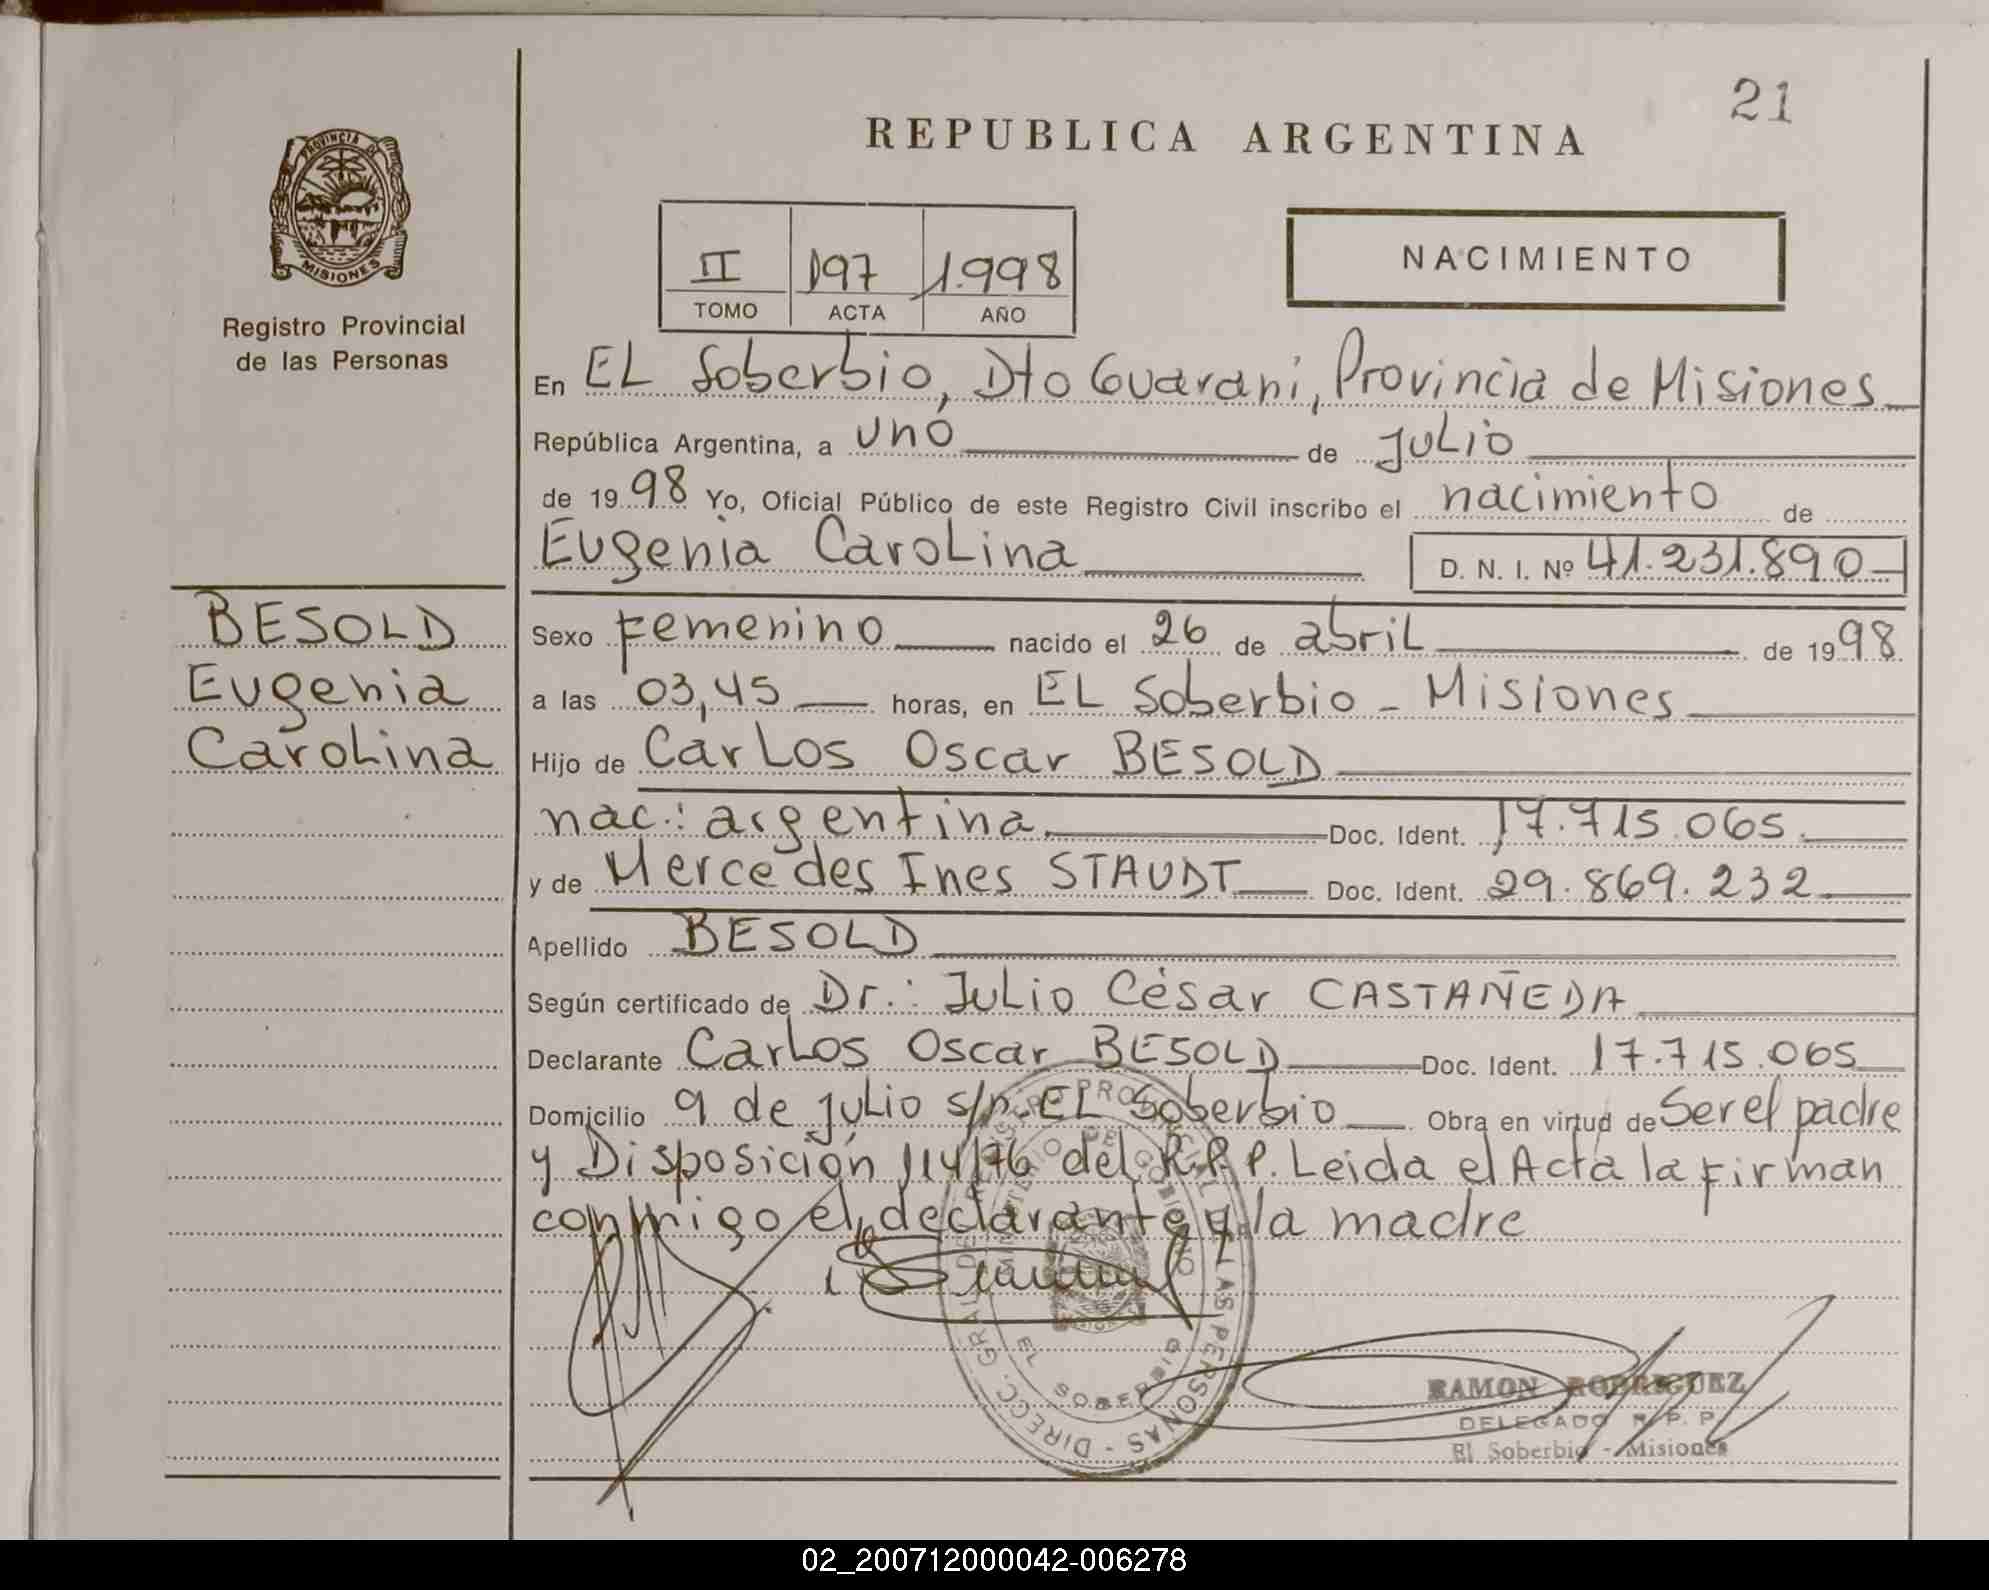 21
REPUBLICA ARGENTINA
PROVINCIA DE
MISIONES
Registro Provincial
de las Personas
II 197 1.998
TOMO ACTA AÑO
NACIMIENTO
En EL Soberbio, Dto Guaraní, Provincia de Misiones
República Argentina, a uno de Julio
de 1998 Yo, Oficial Público de este Registro Civil inscribo el nacimiento de
Eugenia Carolina D. N. I. Nº 41.231.890
BESOLD
Eugenia
Carolina
Sexo femenino nacido el 26 de abril de 1998
a las 03,45 horas, en EL Soberbio - Misiones
Hijo de Carlos Oscar BESOLD
nac.: argentina. Doc. Ident. 17.715.065.
y de Mercedes Ines STAUDT Doc. Ident. 29.869.232
Apellido BESOLD
Según certificado de Dr.: Julio César CASTAÑEDA
Declarante Carlos Oscar BESOLD Doc. Ident. 17.715.065
Domicilio 9 de julio s/n. EL Soberbio Obra en virtud de Ser el padre
y Disposición 114/76 del R.P.P. Leida el Acta la firman
conmigo el declarante y la madre
RAMON RODRIGUEZ
DELEGADO R. P. P.
El Soberbio - Misiones
02_200712000042-006278